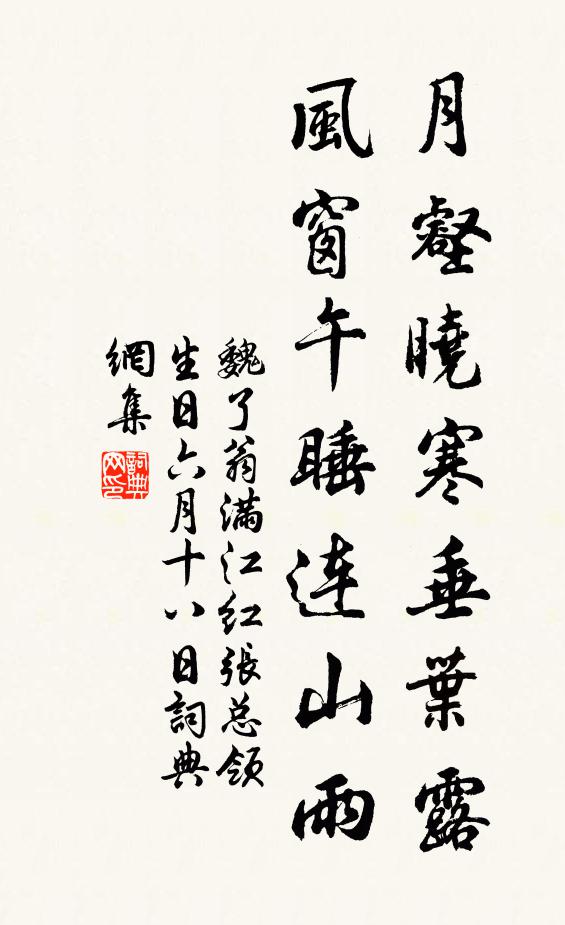 月壑曉寒垂葉露
風窗午睡連山雨
魏了翁满江红張总領
生日六月十八日詞典
網集
詞典
网印